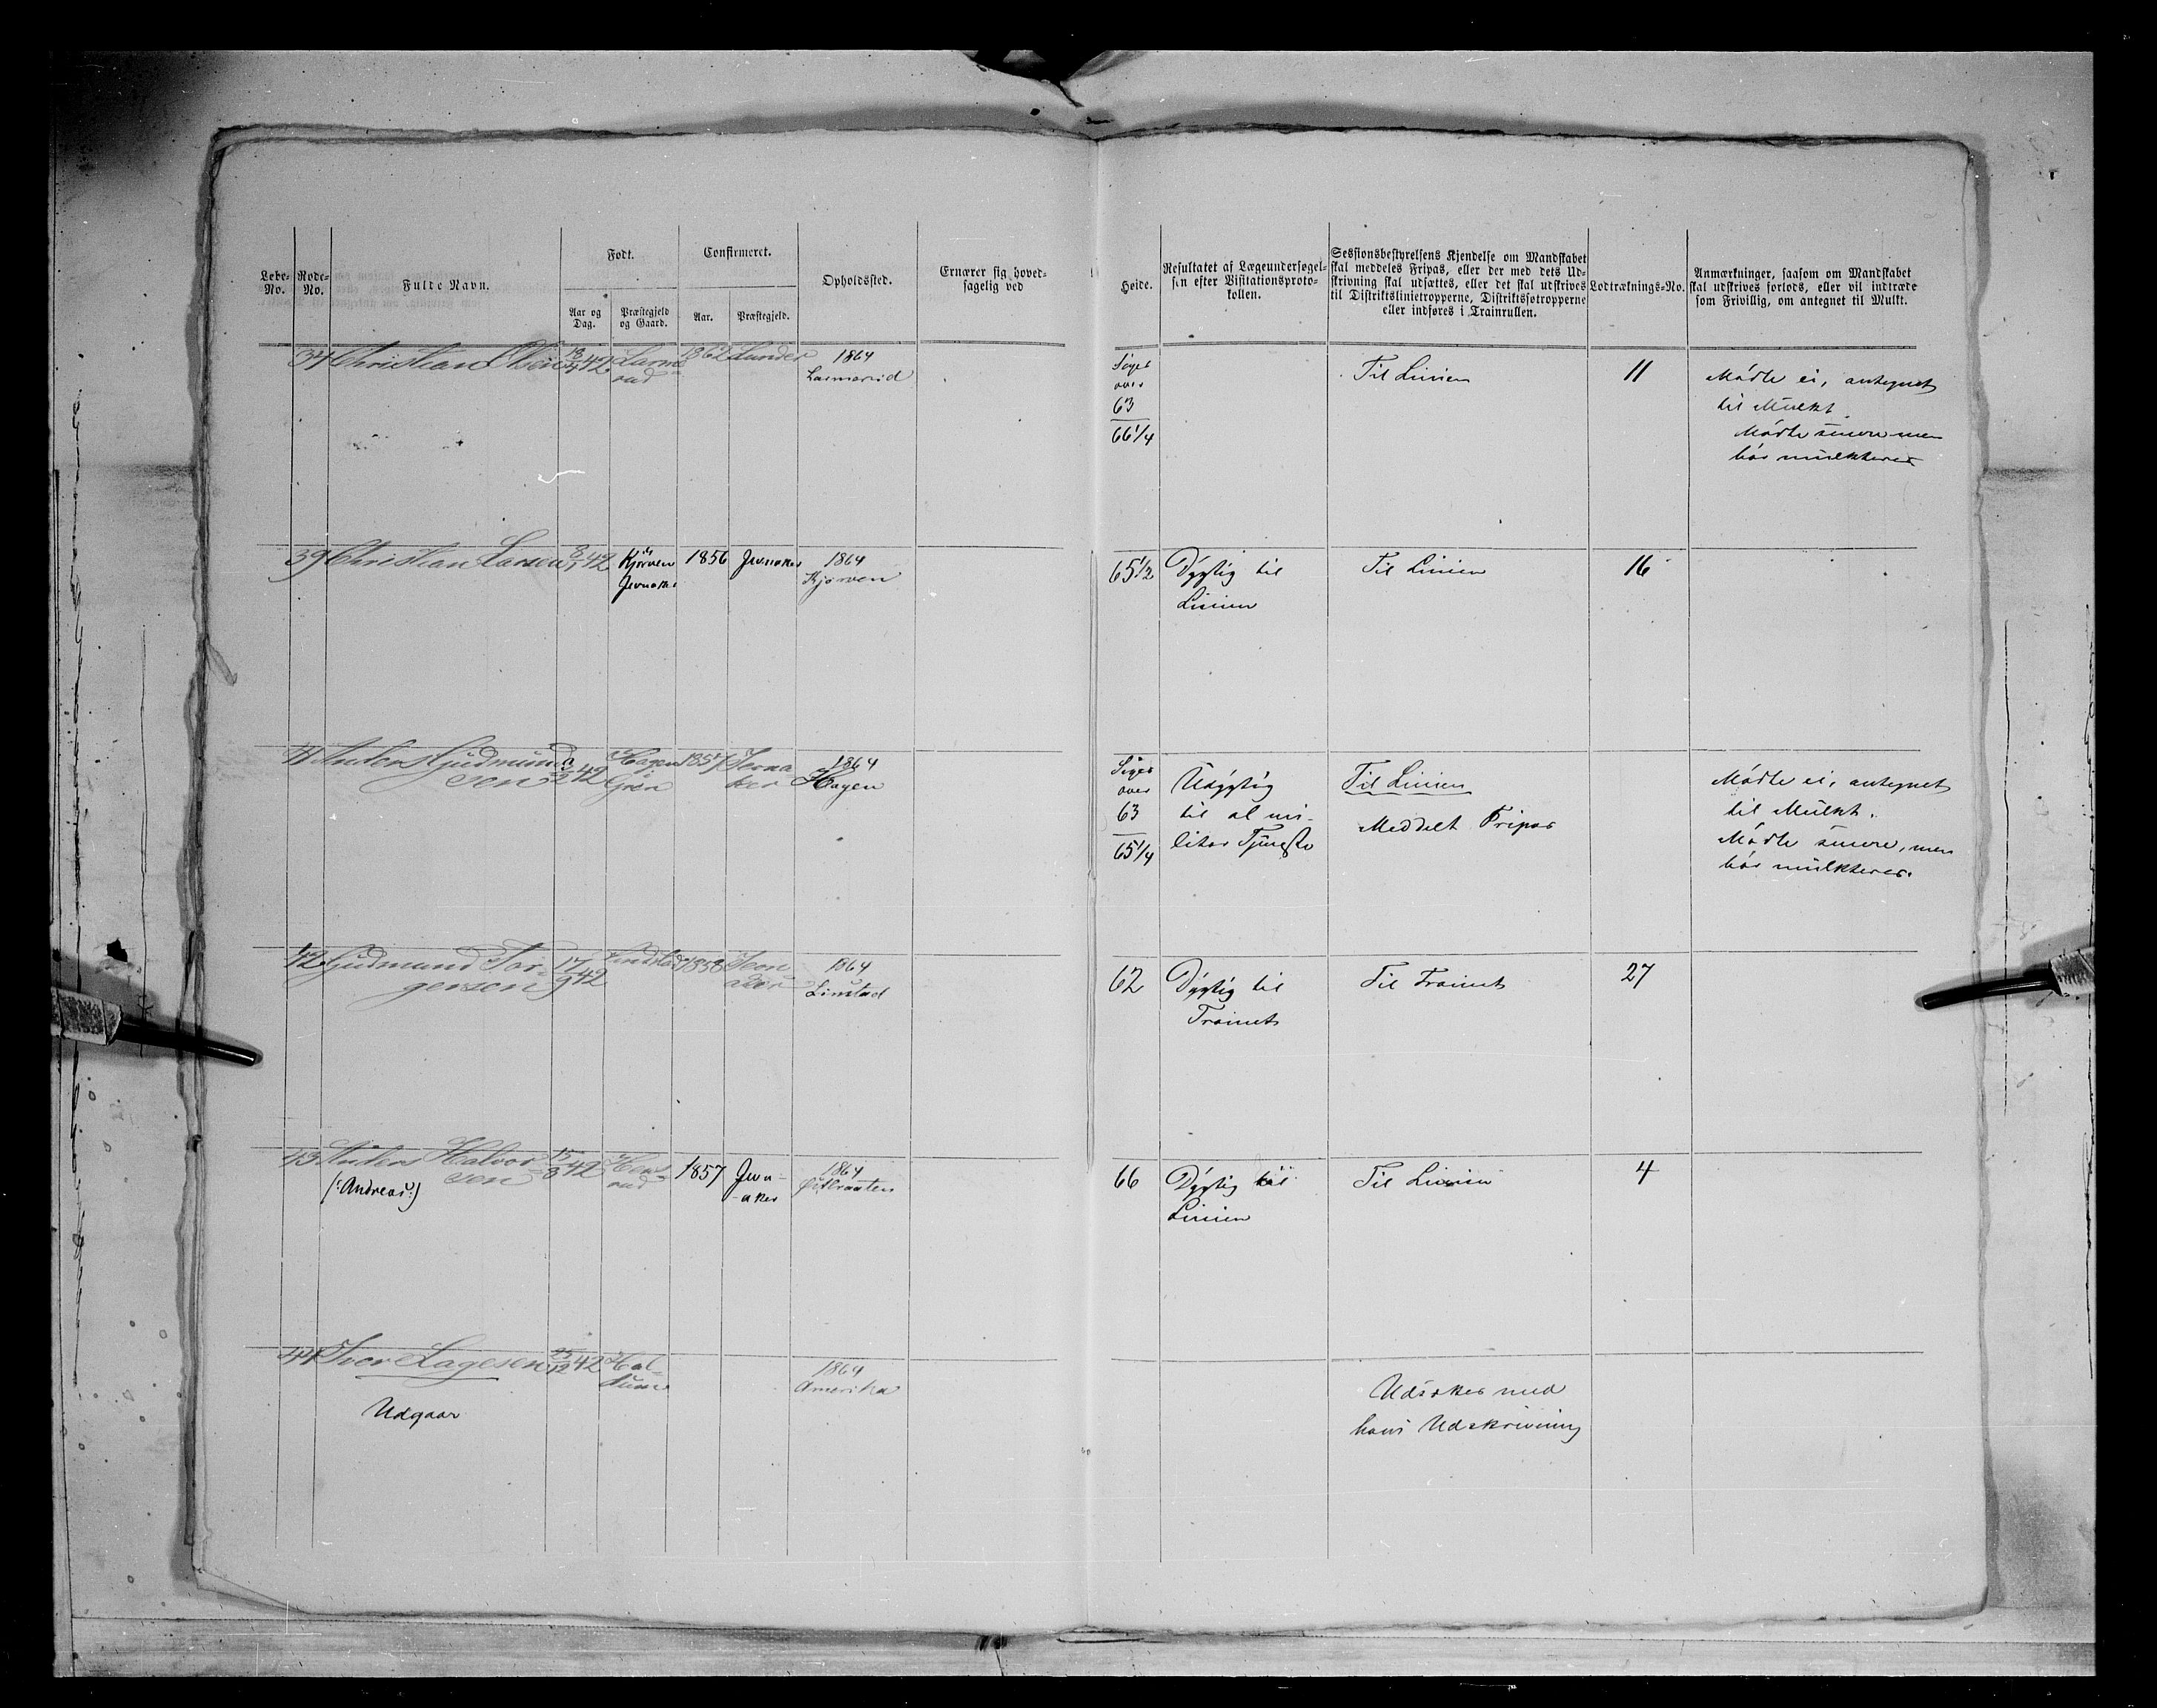 Løbe-No.
Rode-No.
Fulde Navn.
Født.
Aar og Dag.
Præstegjeld og Gaard.
Confirmeret.
Aar.
Præstegjeld.
Opholdssted.
Ernærer sig hoved-
sagelig ved
Høide.
Resultatet af Lægeundersøgel-
sen efter Visitationsproto-
kollen.
Sessionsbestyrelsens Kjendelse om Mandskabet
skal meddeles Fripas, eller der med dets Ud-
skrivning skal udsættes, eller det skal udskrives
til Distriktslinietropperne, Distriktsfotropperne
eller indføres i Trainrullen.
Lodtræknings-No.
Anmærkninger, saasom om Mandskabet
skal udskrives forlods, eller vil indtræde
som Frivillig, om antegnet til Mulkt.
34 Christian Olsen 18/4 42 Larme- 1862 Lunder 1864
rud Larmerud
Siges
over
63
66 1/4
Til Linien 11
Mødte ei, antegnet
til Mulkt.
Mødte senere men
bør mulkteres
39 Christian Larsen 8/1 42 Kjørven 1856 Jevnaker 1864
Jevnaker Kjørven
65 1/2 Dygtig til Til Linien 16
Linien
41 Anders Gudmund- 42 Hagen 1857 Jevna- 1864
sen Gran ker Hagen
Siges
over
63
65 1/4
Udygtig
til al mi-
litær Tjeneste
Til Linien
Meddelt Fripas
Mødte ei, antegnet
til Mulkt.
Mødte senere, men
bør mulkteres.
42 Gudmund Tor- 17/9 42 Lindstad 1858 Jevn- 1864
gersen aker Limstad
62 Dygtig til Til Trainet 27
Trainet
43 Anders Halvor- 15/8 42 1857 Jevn- 1864
sen rud -aker
(:Andreas:)
66 Dygtig til Til Linien 4
Linien
44 Iver Lagesen 25/12 42 Hal- 1864
Amerika
Udgaar
Udsættes med
hans Udskrivning